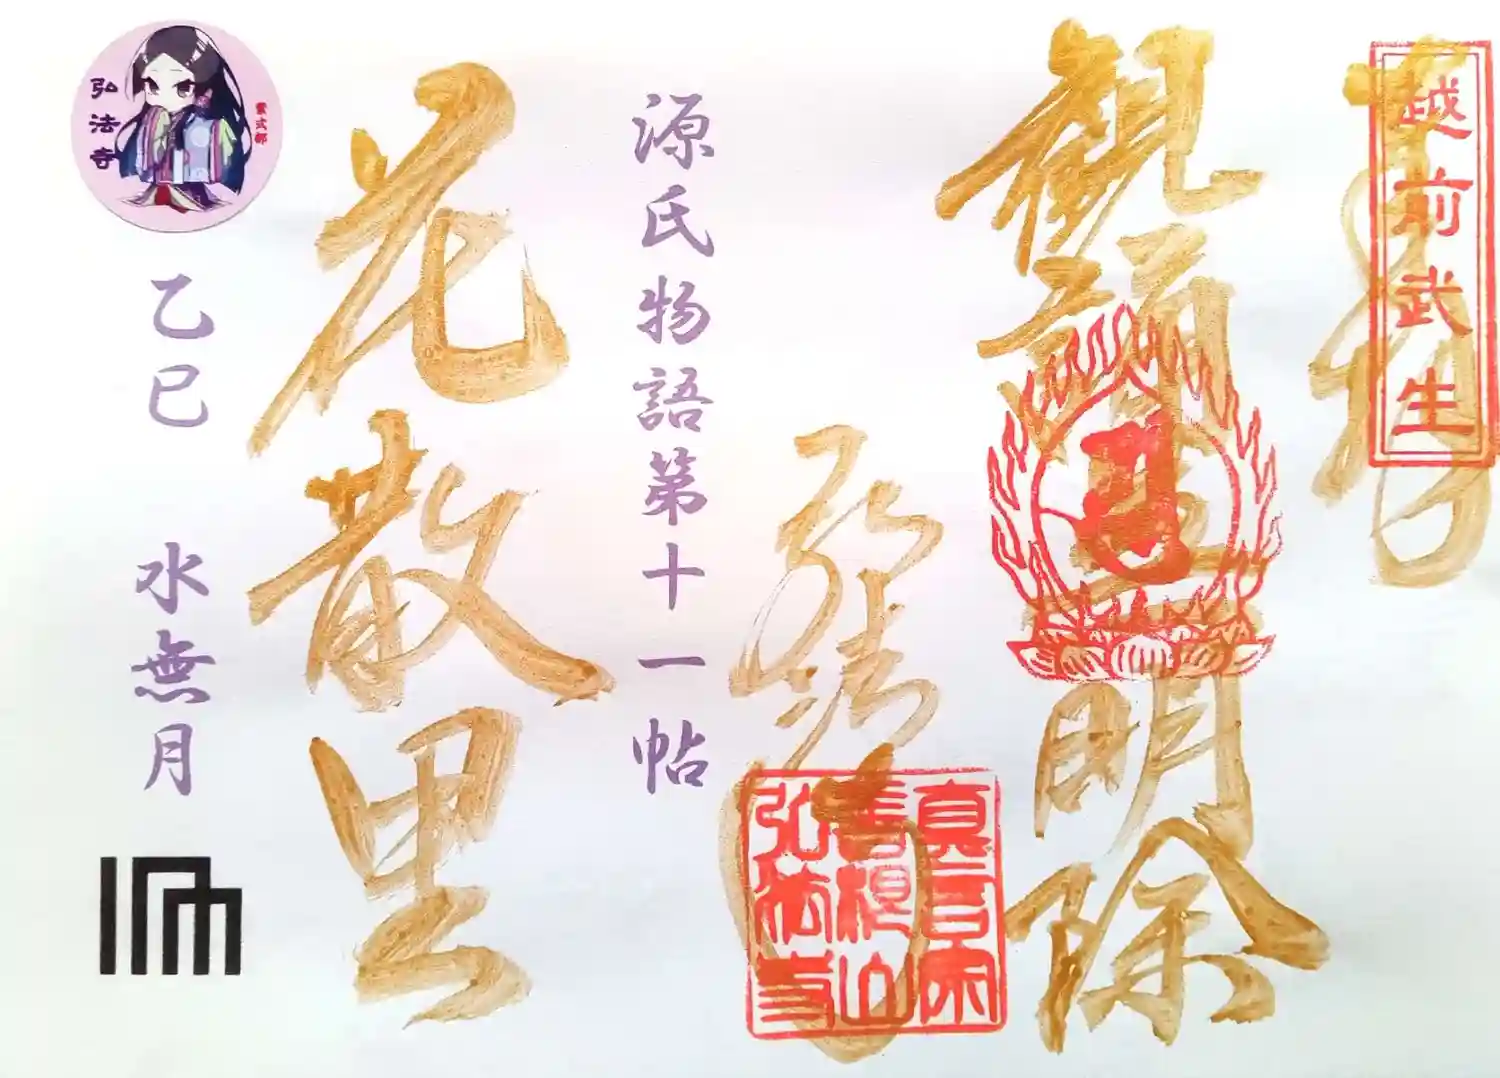 越前武生
奉拝
観誦無明除
弘法寺
真言宗
弘法寺
源氏物語第十一帖
花散里
紫式部
弘法寺
乙巳 水無月